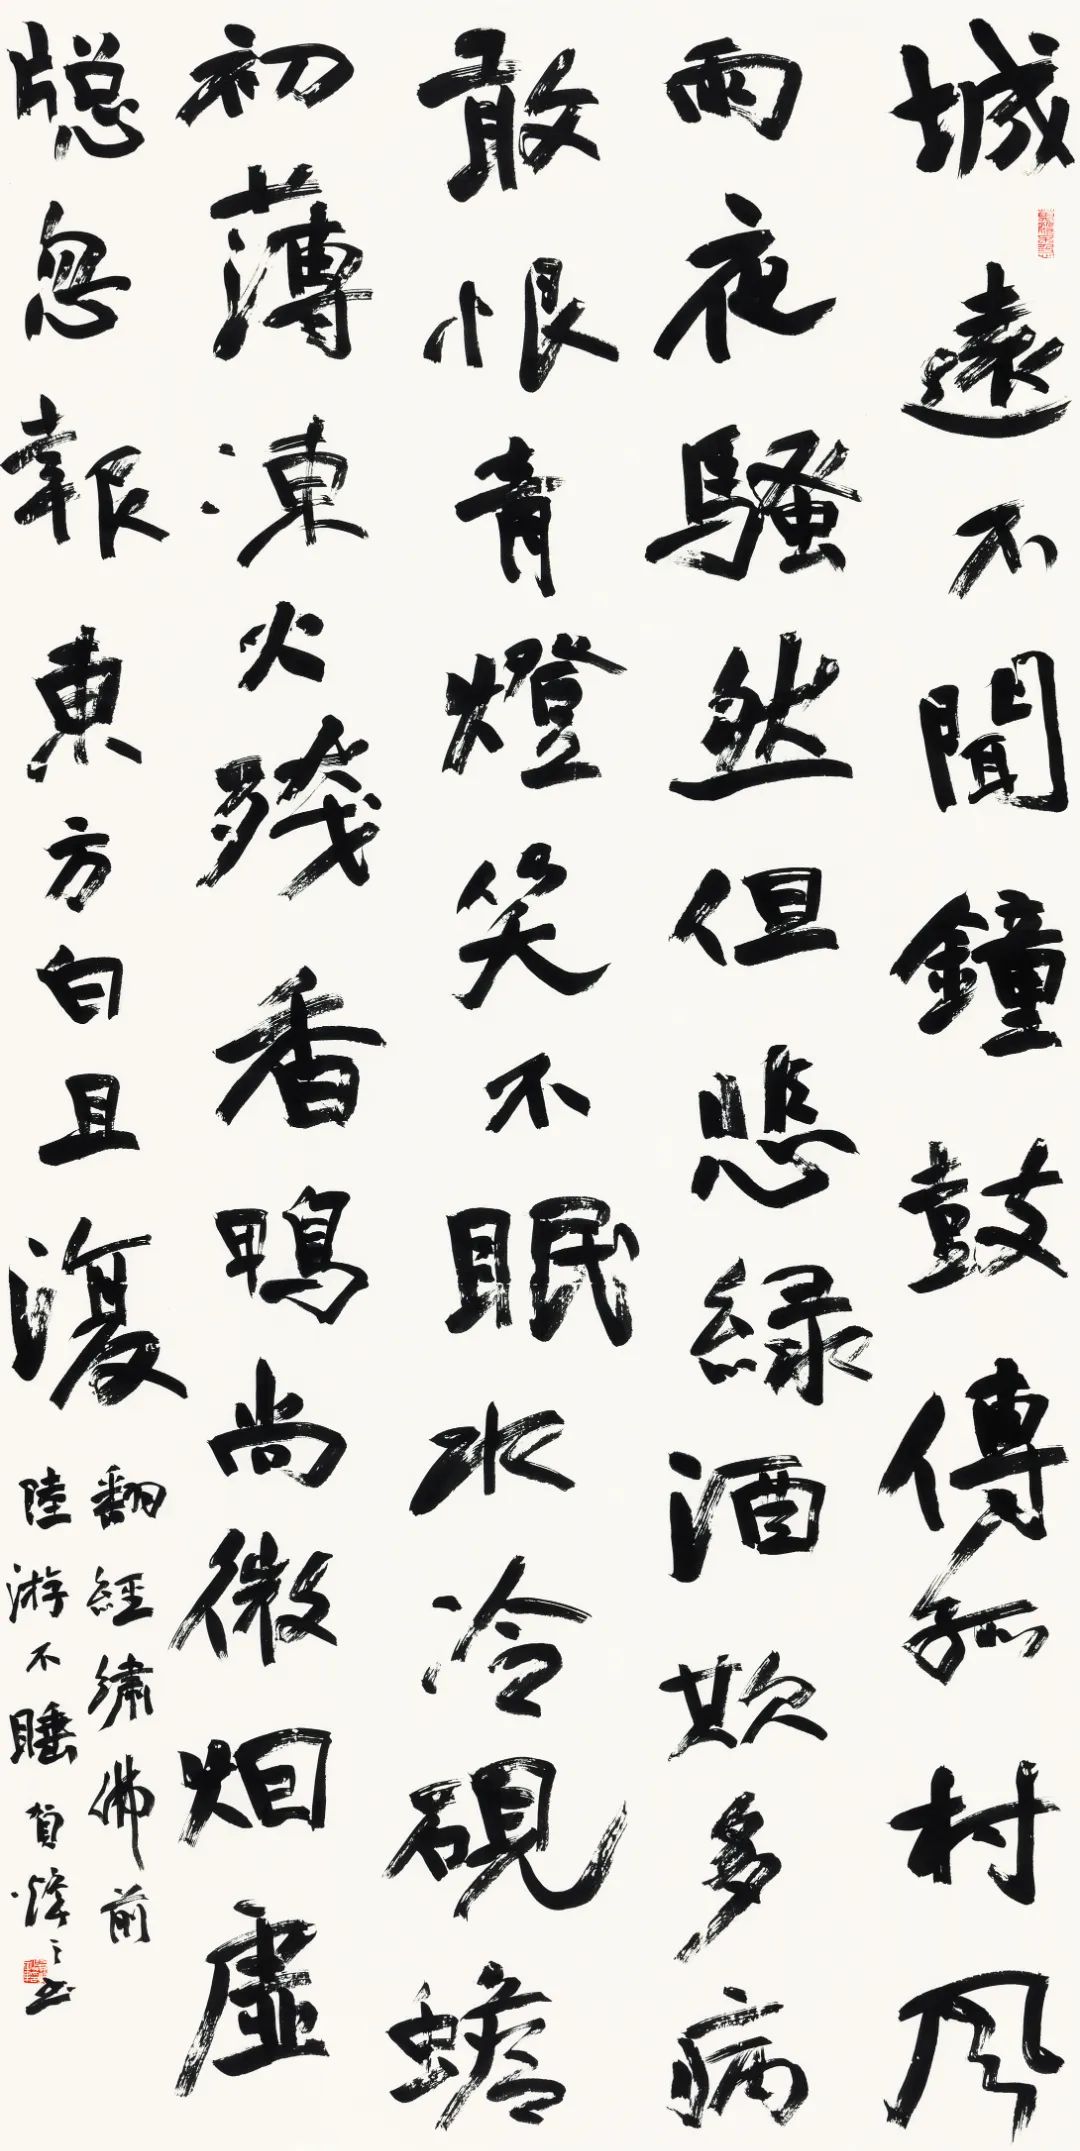 城遠不聞鐘鼓傳孤村風
雨夜騷然但悲緑酒欺多病
敢恨青燈笑不眠水冷硯蟾
初薄凍火殘香鴨尚微烟虛
窗忽報東方白且復
翻經繡佛前
陸游不睡